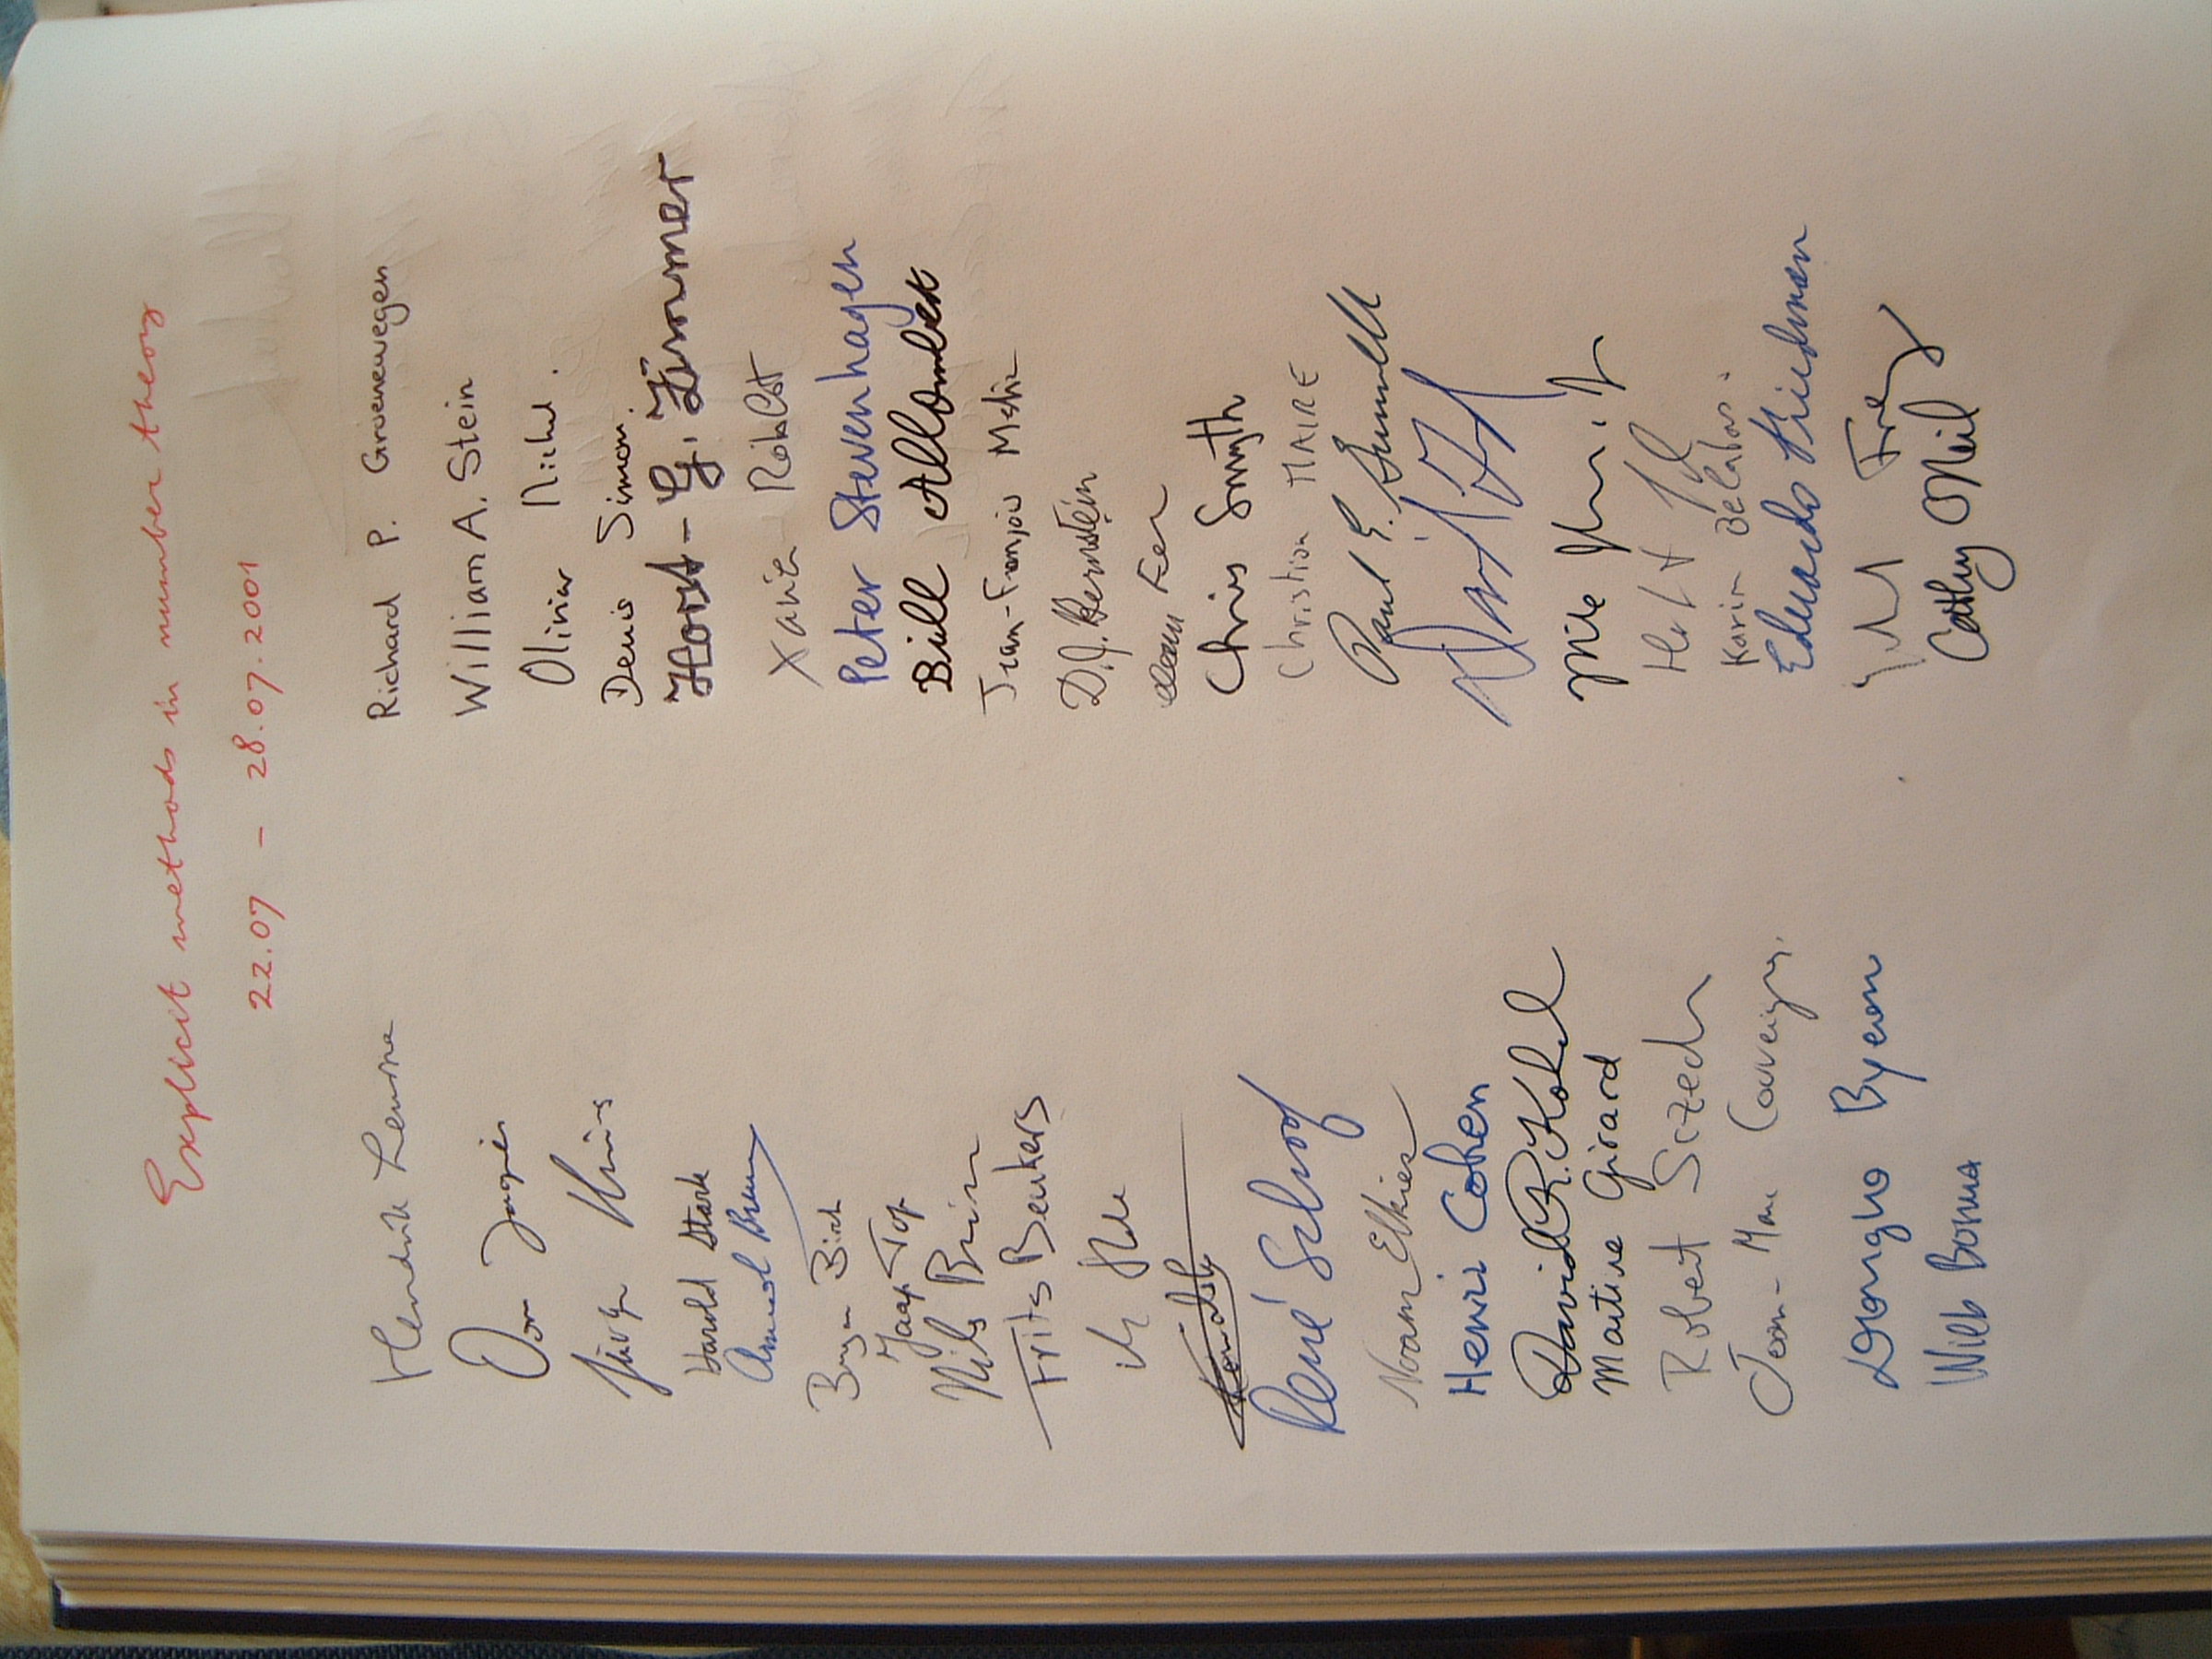 Explicit methods in number theory
22.07 – 28.07.2001
Hendrik Lenstra
Don Zagier
Jürgen Klüners
Harold Stark
Armand Brumer
Bryan Birch
Jaap Top
Nils Bruin
Frits Beukers
René Schoof
Noam Elkies
Henri Cohen
David R. Kohel
Martine Girard
Robert Sczech
Jean-Marc Couveignes
Dongho Byeon
Wieb Bosma
Richard P. Groenewegen
William A. Stein
Olivier Michel.
Denis Simon.
Horst-G. Zimmer
Xavier Roblot
Peter Stevenhagen
Bill Allombert
Jean-François Mestre
D.J. Bernstein
Chris Smyth
Christian MAIRE
Paul E. Gunnells
Karim Belabas.
Eduardo Friedman
Frey
Cathy O'Neil